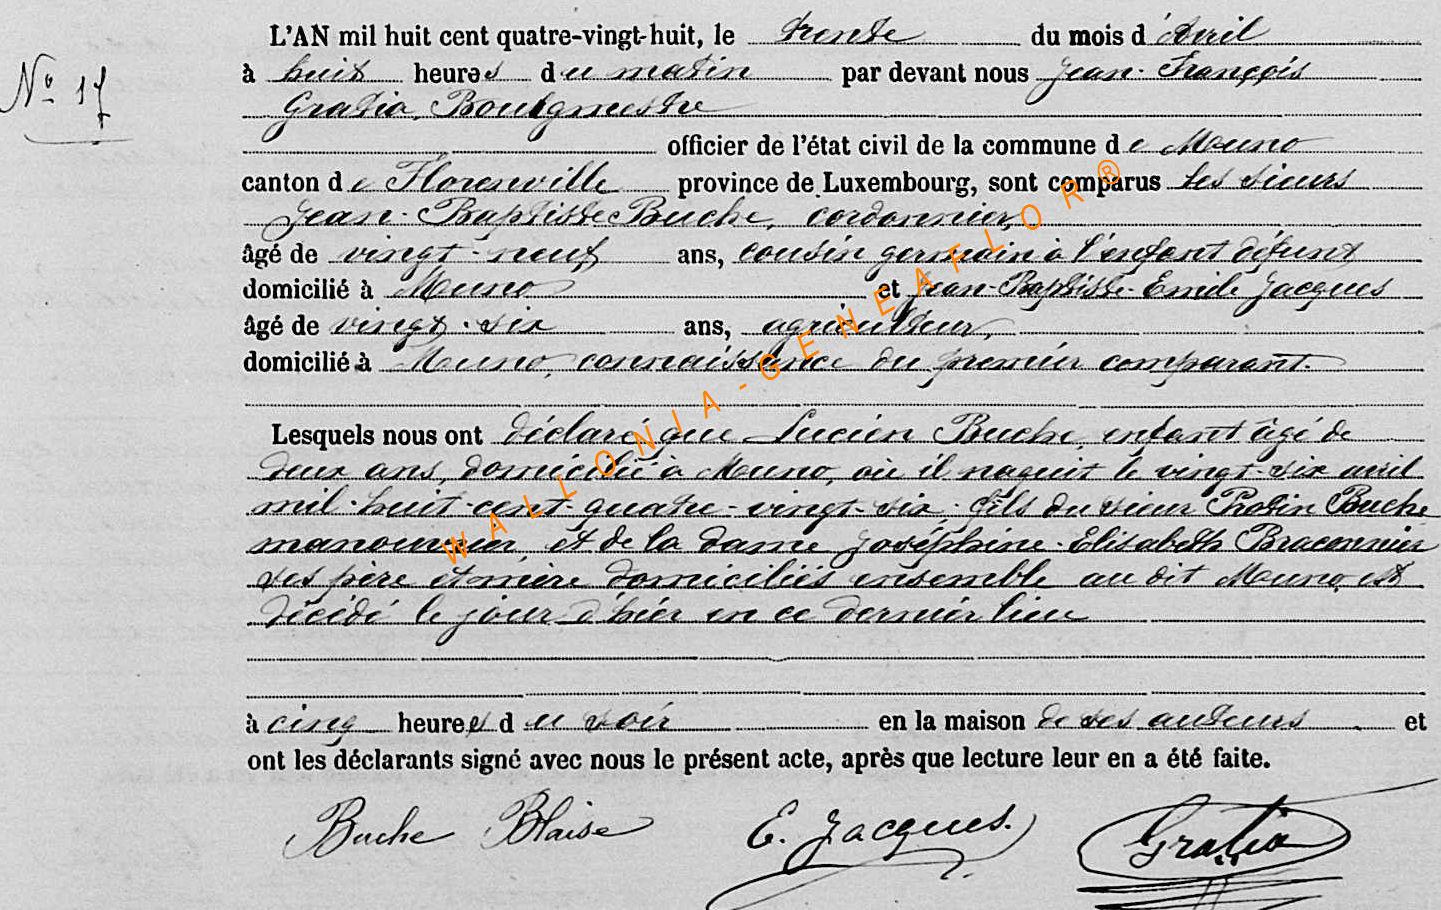 L'AN mil huit cent quatre-vingt-huit, le trente du mois d'Avril
Nº 17
à huit heures du matin par devant nous Jean-François
Gratia, Bourgmestre
officier de l'état civil de la commune de Muno
canton de Florenville province de Luxembourg, sont comparus les sieurs
Jean-Baptiste Buche, cordonnier,
âgé de vingt-neuf ans, cousin germain à l'enfant défunt,
domicilié à Muno et Jean-Baptiste-Emile Jacques
âgé de vingt-six ans, agriculteur,
domicilié à Muno, connaissance du premier comparant.
Lesquels nous ont déclaré que Lucien Buche, enfant âgé de
deux ans, domicilié à Muno, où il naquit le vingt-six avril
mil-huit-cent-quatre-vingt-six, fils du sieur Buche
manouvrier, et de la dame Joséphine-Elisabeth Braconnier
ses père et mère domiciliés ensemble au dit Muno, est
décédé le jour d'hier en ce dernier lieu
à cinq heures du soir en la maison de ses auteurs et
ont les déclarants signé avec nous le présent acte, après que lecture leur en a été faite.
Buche Blaise E. Jacques. Gratia
WALLONIA-GENEAFLOR®